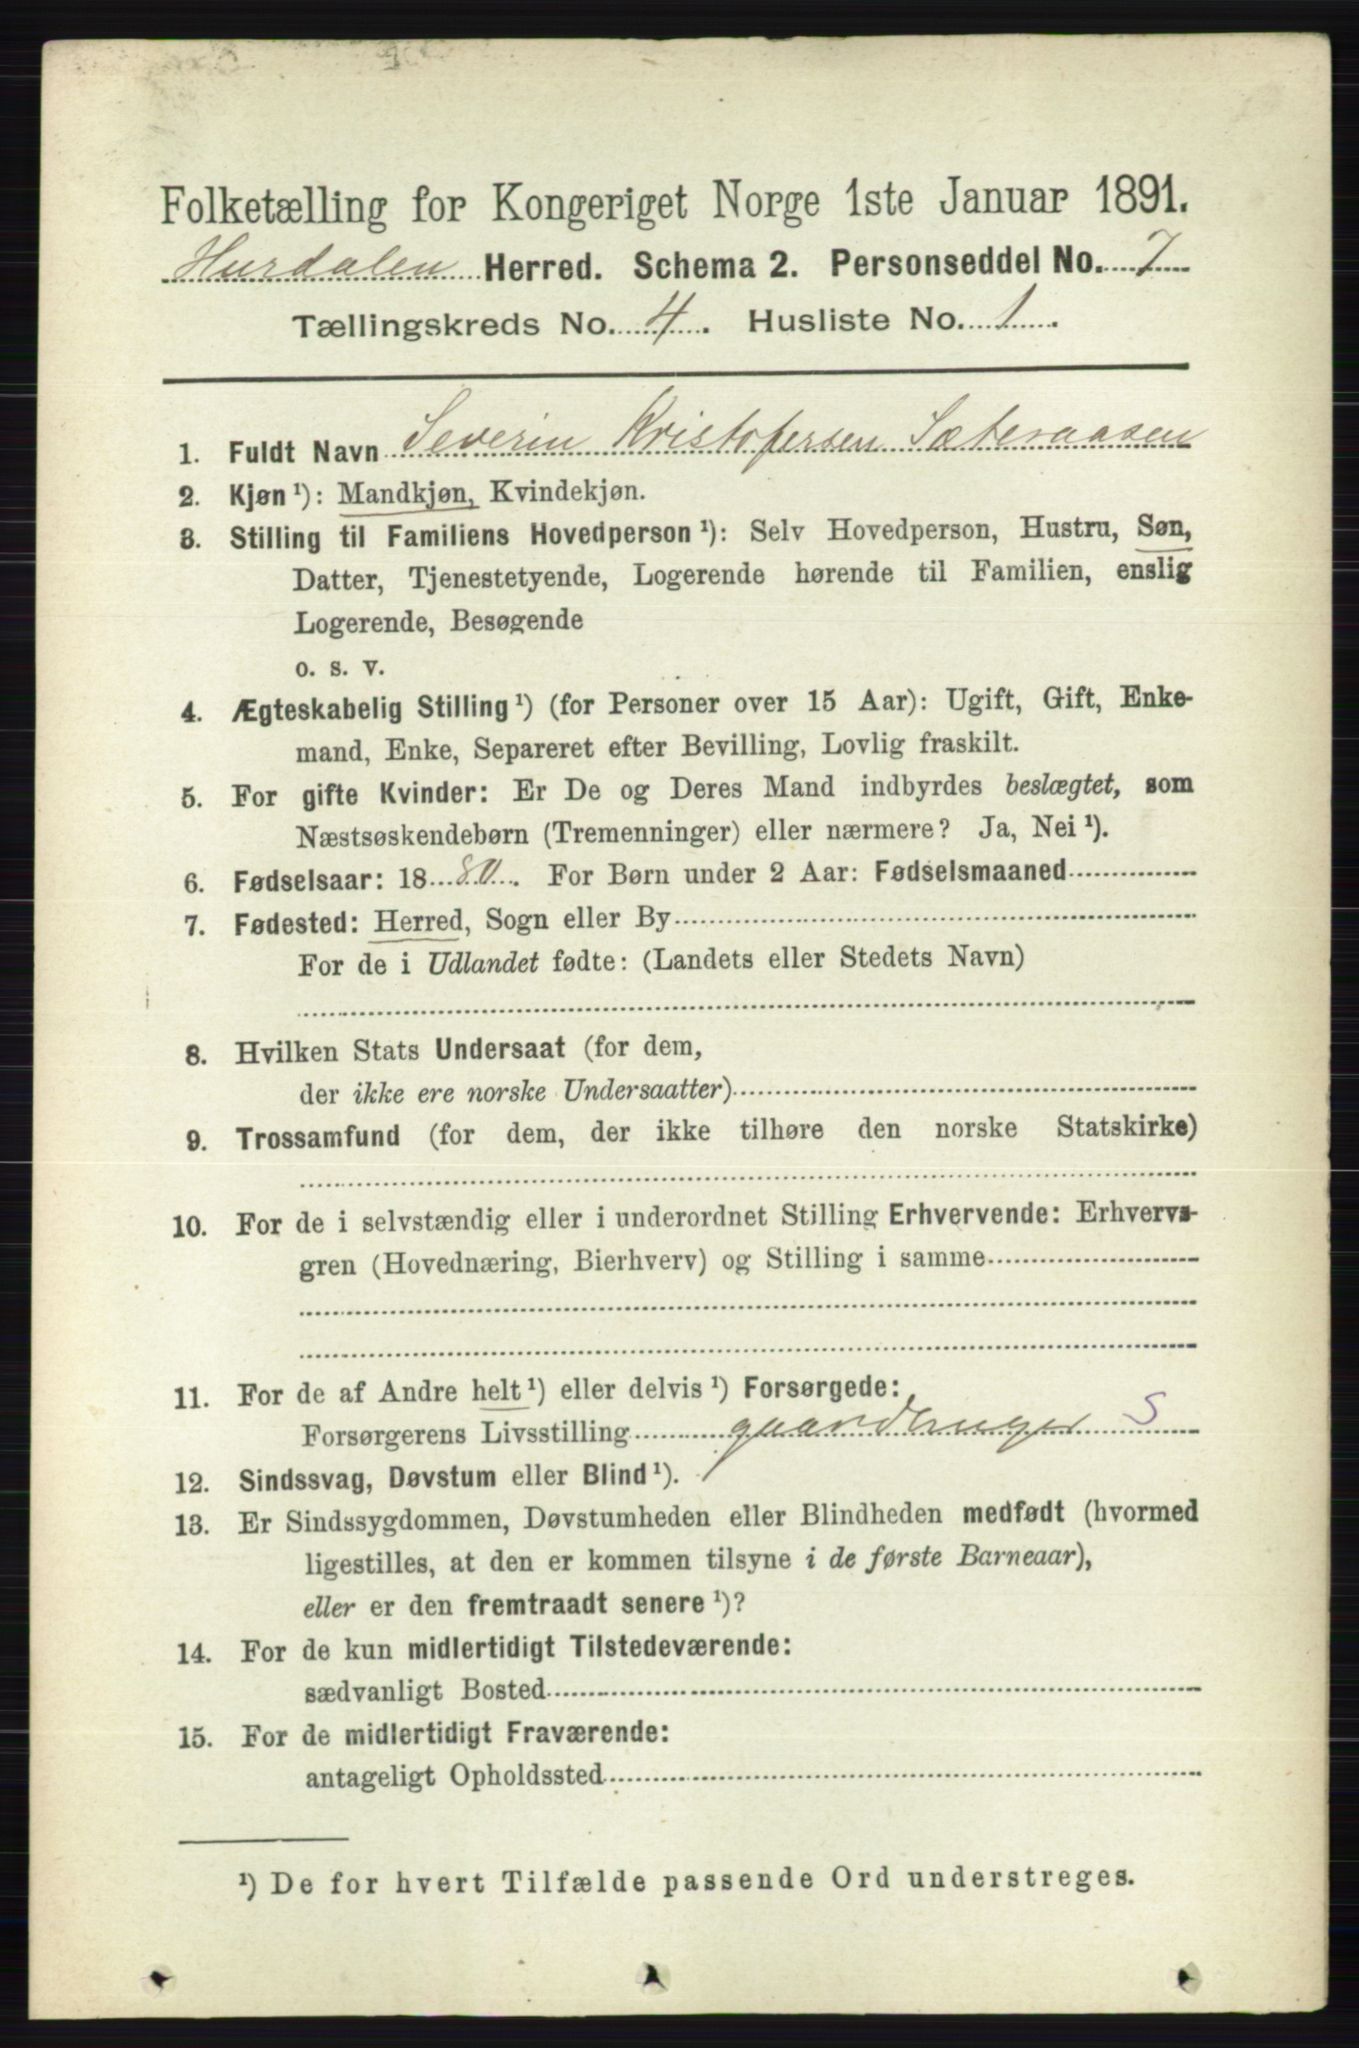 Folketælling for Kongeriget Norge 1ste Januar 1891.
Hurdalen Herred. Schema 2. Personseddel No. 7
Tællingskreds No. 4. Husliste No. 1.
1. Fuldt Navn Severin Kristofersen Sæteraasen
2. Kjøn ¹): Mandkjøn, Kvindekjøn.
3. Stilling til Familiens Hovedperson ¹): Selv Hovedperson, Hustru, Søn,
Datter, Tjenestetyende, Logerende hørende til Familien, enslig
Logerende, Besøgende
o. s. v.
4. Ægteskabelig Stilling ¹) (for Personer over 15 Aar): Ugift, Gift, Enke-
mand, Enke, Separeret efter Bevilling, Lovlig fraskilt.
5. For gifte Kvinder: Er De og Deres Mand indbyrdes beslægtet, som
Næstsøskendebørn (Tremenninger) eller nærmere? Ja, Nei ¹).
6. Fødselsaar: 1880. For Børn under 2 Aar: Fødselsmaaned
7. Fødested: Herred, Sogn eller By
For de i Udlandet fødte: (Landets eller Stedets Navn)
8. Hvilken Stats Undersaat (for dem,
der ikke ere norske Undersaatter)
9. Trossamfund (for dem, der ikke tilhøre den norske Statskirke)
10. For de i selvstændig eller i underordnet Stilling Erhvervende: Erhvervs-
gren (Hovednæring, Bierhverv) og Stilling i samme
11. For de af Andre helt ¹) eller delvis ¹) Forsørgede:
Forsørgerens Livsstilling gaardbruger S
12. Sindssvag, Døvstum eller Blind ¹).
13. Er Sindssygdommen, Døvstumheden eller Blindheden medfødt (hvormed
ligestilles, at den er kommen tilsyne i de første Barneaar),
eller er den fremtraadt senere ¹)?
14. For de kun midlertidigt Tilstedeværende:
sædvanligt Bosted
15. For de midlertidigt Fraværende:
antageligt Opholdssted
¹) De for hvert Tilfælde passende Ord understreges.